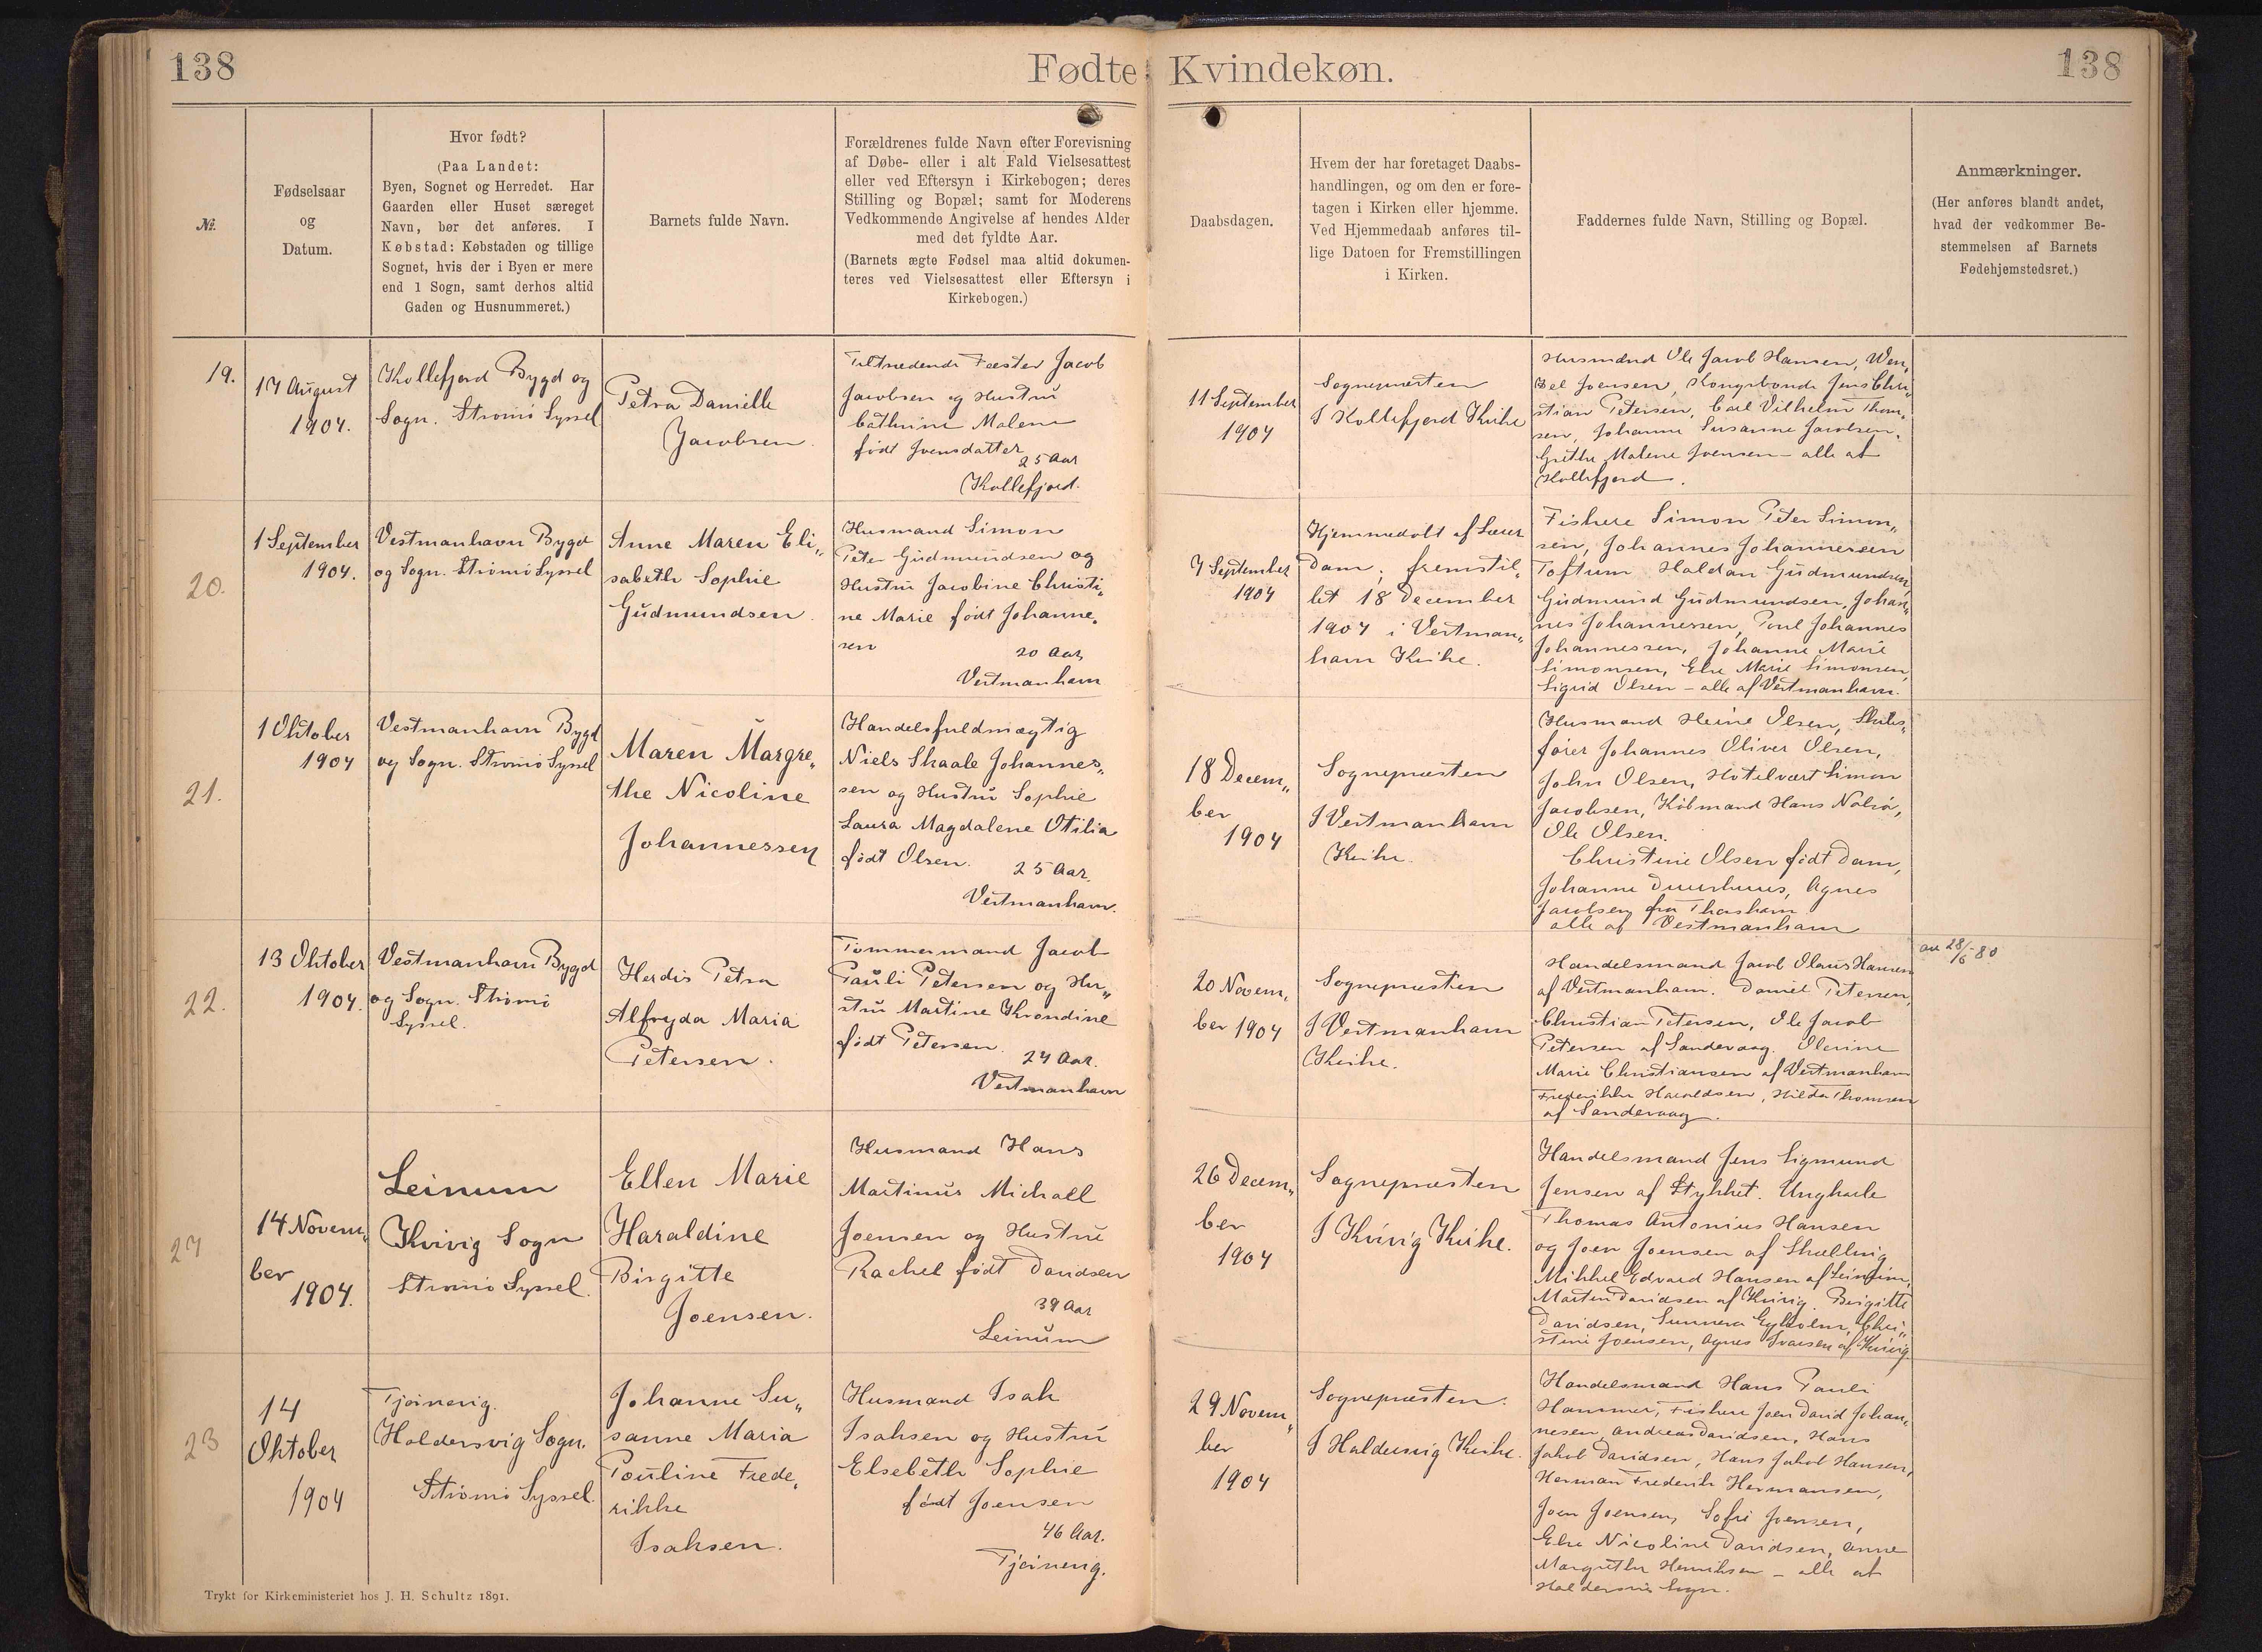 138
Fødte Kvindekøn.
138
№.
Fødselsaar
og
Datum.
Hvor født?
(Paa Landet:
Byen, Sognet og Herredet. Har
Gaarden eller Huset særeget
Navn, bør det anføres. I
Købstad: Købstaden og tillige
Sognet, hvis der i Byen er mere
end 1 Sogn, samt derhos altid
Gaden og Husnummeret.)
Barnets fulde Navn.
Forældrenes fulde Navn efter Forevisning
af Døbe- eller i alt Fald Vielsesattest
eller ved Eftersyn i Kirkebogen; deres
Stilling og Bopæl; samt for Moderens
Vedkommende Angivelse af hendes Alder
med det fyldte Aar.
(Barnets ægte Fødsel maa altid dokumen-
teres ved Vielsesattest eller Eftersyn i
Kirkebogen.)
Daabsdagen.
Hvem der har foretaget Daabs-
handlingen, og om den er fore-
tagen i Kirken eller hjemme.
Ved Hjemmedaab anføres til-
lige Datoen for Fremstillingen
i Kirken.
Faddernes fulde Navn, Stilling og Bopæl.
Anmærkninger.
(Her anføres blandt andet,
hvad der vedkommer Be-
stemmelsen af Barnets
Fødehjemstedsret.)
19.
17 August
1904.
Kollefjord Bygd og
Sogn. Strømø Syssel
Petra Danielle
Jacobsen.
Tiltrædende Fæster Jacob
Jacobsen og Hustru
Cathrine Malene
født Joensdatter
25 Aar
Kollefjord.
11 September
1904
Sognepræsten
I Kollefjord Kirke
Husmænd Ole Jacob Hansen, Wen„
zel Joensen, Kongsbonde Jens Chri„
stian Petersen, Carl Vilhelm Thom„
sen, Johanne Susanne Jacobsen,
Grethe Malene Joensen – alle af
Kollefjord.
20.
1 September
1904.
Vestmanhavn Bygd
og Sogn. Strømø Syssel
Anne Maren Eli„
sabeth Sophie
Gudmundsen.
Husmand Simon
Peter Gudmundsen og
Hustru Jacobine Christi„
ne Marie født Johanne„
sen
20 Aar,
Vestmanhavn
7 September
1904
Hjemmedøbt af Lærer
Dam, fremstil„
let 18 December
1904 i Vestman„
havn Kirke.
Fiskere Simon Peter Simon„
sen, Johannes Johannessen
Toftum Haldan Gudmundsen,
Gudmund Gudmundsen, Johan„
nes Johannessen, Poul Johannes
Johannessen, Johanne Marie
Simonsen, Else Marie Simonsen,
Sigrid Olsen – alle af Vestmanhavn.
21.
1 Oktober
1904
Vestmanhavn Bygd
og Sogn. Strømø Syssel
Maren Margre„
the Nicoline
Johannessen
Handelsfuldmægtig
Niels Skaale Johannes„
sen og Hustru Sophie
Laura Magdalene Otilia
født Olsen.
25 Aar.
Vestmanhavn.
18 Decem„
ber
1904
Sognepræsten
I Vestmanhavn
Kirke.
Husmand Heine Olsen, Skibs„
fører Johannes Oliver Olsen,
John Olsen, Hotelvært Simon
Jacobsen, Købmand Hans Nolsø,
Ole Olsen.
Christine Olsen født Dam,
Johanne Duurhuus, Agnes
Jacobsen fra Thorshavn
alle af Vestmanhavn
22.
13 Oktober
1904.
Vestmanhavn Bygd
og Sogn. Strømø
Syssel.
Herdis Petra
Alfryda Maria
Petersen.
Tømmermand Jacob
Pauli Petersen og Hu„
stru Martine Krondine
født Petersen.
24 Aar.
Vestmanhavn
20 Novem„
ber 1904
Sognepræsten
I Vestmanhavn
Kirke.
Handelsmand Jacob Olaus Hansen
af Vestmanhavn. Daniel Petersen,
Christian Petersen, Ole Jacob
Petersen af Sandevaag. Olevine
Marie Christiansen af Vestmanhavn
Frederikke Haraldsen, Hilda Thomsen
af Sandevaag.
28/6-80
14 Novem„
ber
1904.
Leinum
Kvivig Sogn
Strømø Syssel.
Ellen Marie
Haraldine
Birgitte
Joensen.
Husmand Hans
Martinus Michall
Joensen og Hustru
Rachel født Davidsen
39 Aar
Leinum
26 Decem„
ber
1904
Sognepræsten
I Kvivig Kirke.
Handelsmand Jens Sigmund
Jensen af Stykket. Ungkarle
Thomas Antonius Hansen
og Joen Joensen af Skælling
Mikkel Edvard Hansen af Leinum,
Morten Davidsen af Kvivig. Birgitte
Davidsen, Sunneva Egholm, Chri„
stine Joensen, Agnes Ivarsen af Kvivig
23
14
Oktober
1904
Tjørnevig.
Haldersvig Sogn.
Strømø Syssel.
Johanne Su„
sanne Maria
Pouline Frede„
rikke
Isaksen.
Husmand Isak
Isaksen og Hustru
Elsebeth Sophie
født Joensen
46 Aar.
Tjørnevig.
29 Novem„
ber
1904
Sognepræsten.
I Haldersvig Kirke.
Handelsmand Hans Pauli
Hammer, Fiskere Joen David Johan„
nesen, Andreas Davidsen, Hans
Jakob Davidsen, Hans Jakob Hansen,
Herman Frederik Hermansen,
Joen Joensen, Sofie Joensen,
Else Nicoline Davidsen, Anne
Margrethe Henriksen – alle af
Haldersvig Sogn.
Trykt for Kirkeministeriet hos J. H. Schultz 1891.